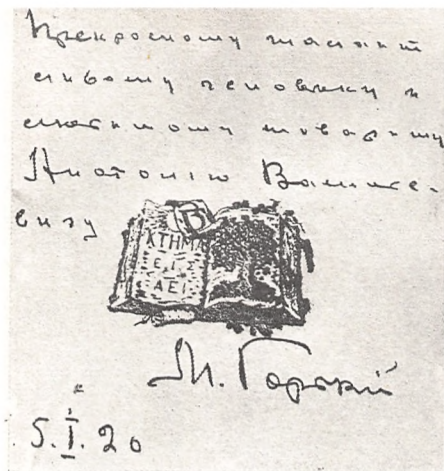 Прекрасному талант
ливому человеку и
любимому товарищу
Анатолию Василье-
вичу
В
ΚΤΗΜΑ
Ε.Ι.Σ
ΑΕΙ
М. Горькій
5.I.20